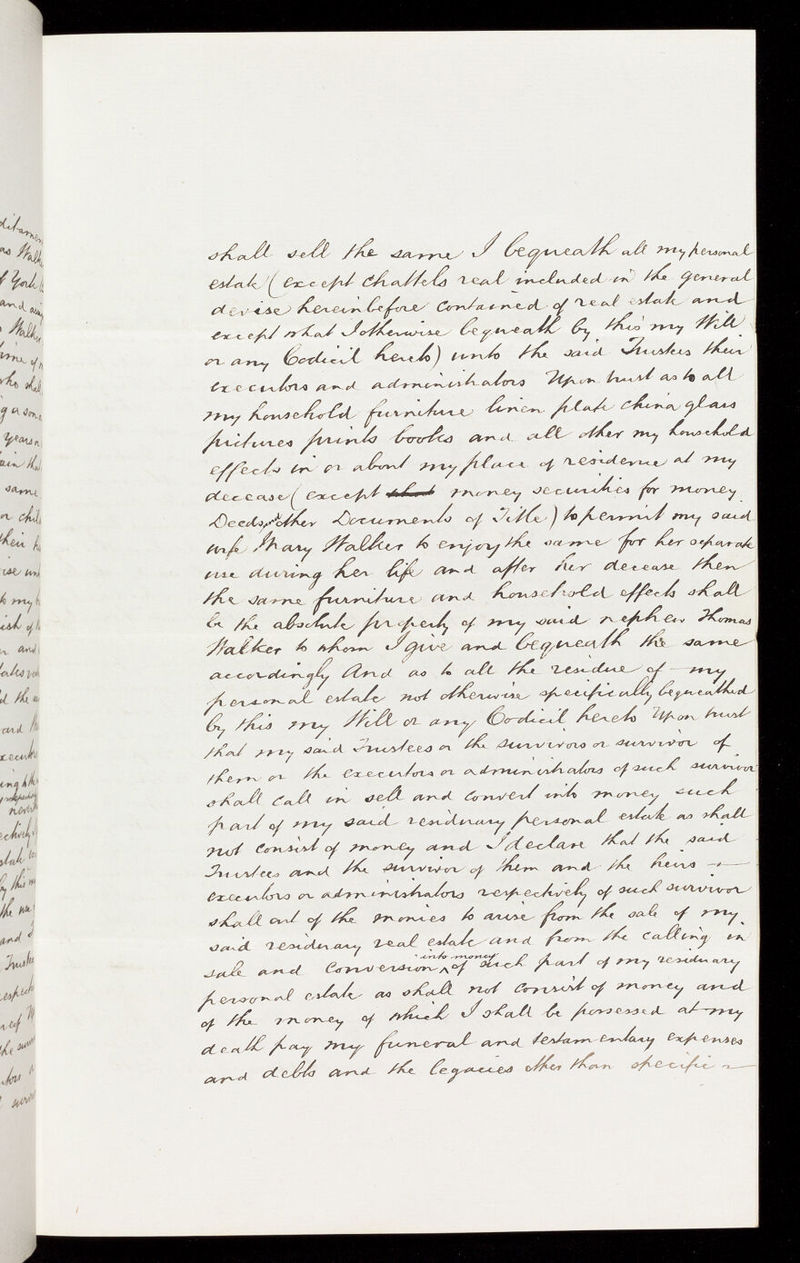 shall sell the same I bequeath all my personal
estate (except Chattels real included in the general
devise hereinbefore contained of real estate and
except what I otherwise bequeath by this my Will
or any Codicil hereto) unto the said Trustees their
executors and administrators Upon trust as to all
my household furniture linen plate china glass
pictures prints books and all other my household
effects in or about my place of residence at my
decease (except money securities for money
Deeds, & other Documents of Title) to permit my said
wife Mary Walker to enjoy the same for her separate
use during her life and after her decease then
the same furniture and household effects shall
be the absolute property of my said nephew Thomas
Walker to whom I give and bequeath the same
accordingly And as to all the residue of my
personal estate not otherwise specifically bequeathed
by this my Will or any Codicil hereto Upon trust
that my said Trustees or the survivors or survivor of
them or the executors or administrators of such survivor
shall call in sell and convert into money such
part of my said residuary personal estate as shall
not consist of money and I declare that the said
Trustees and the survivor of them and the heirs
executors or administrators respectively of such survivor
shall out of the monies to arise from the sale of my
said residuary real estate and from the calling in
sale and conversion into money of such part of my residuary
personal estate as shall not consist of money and
of the money of which I shall be possessed at my
death pay my funeral and testamentary expenses
and debts and the legacies other than specific